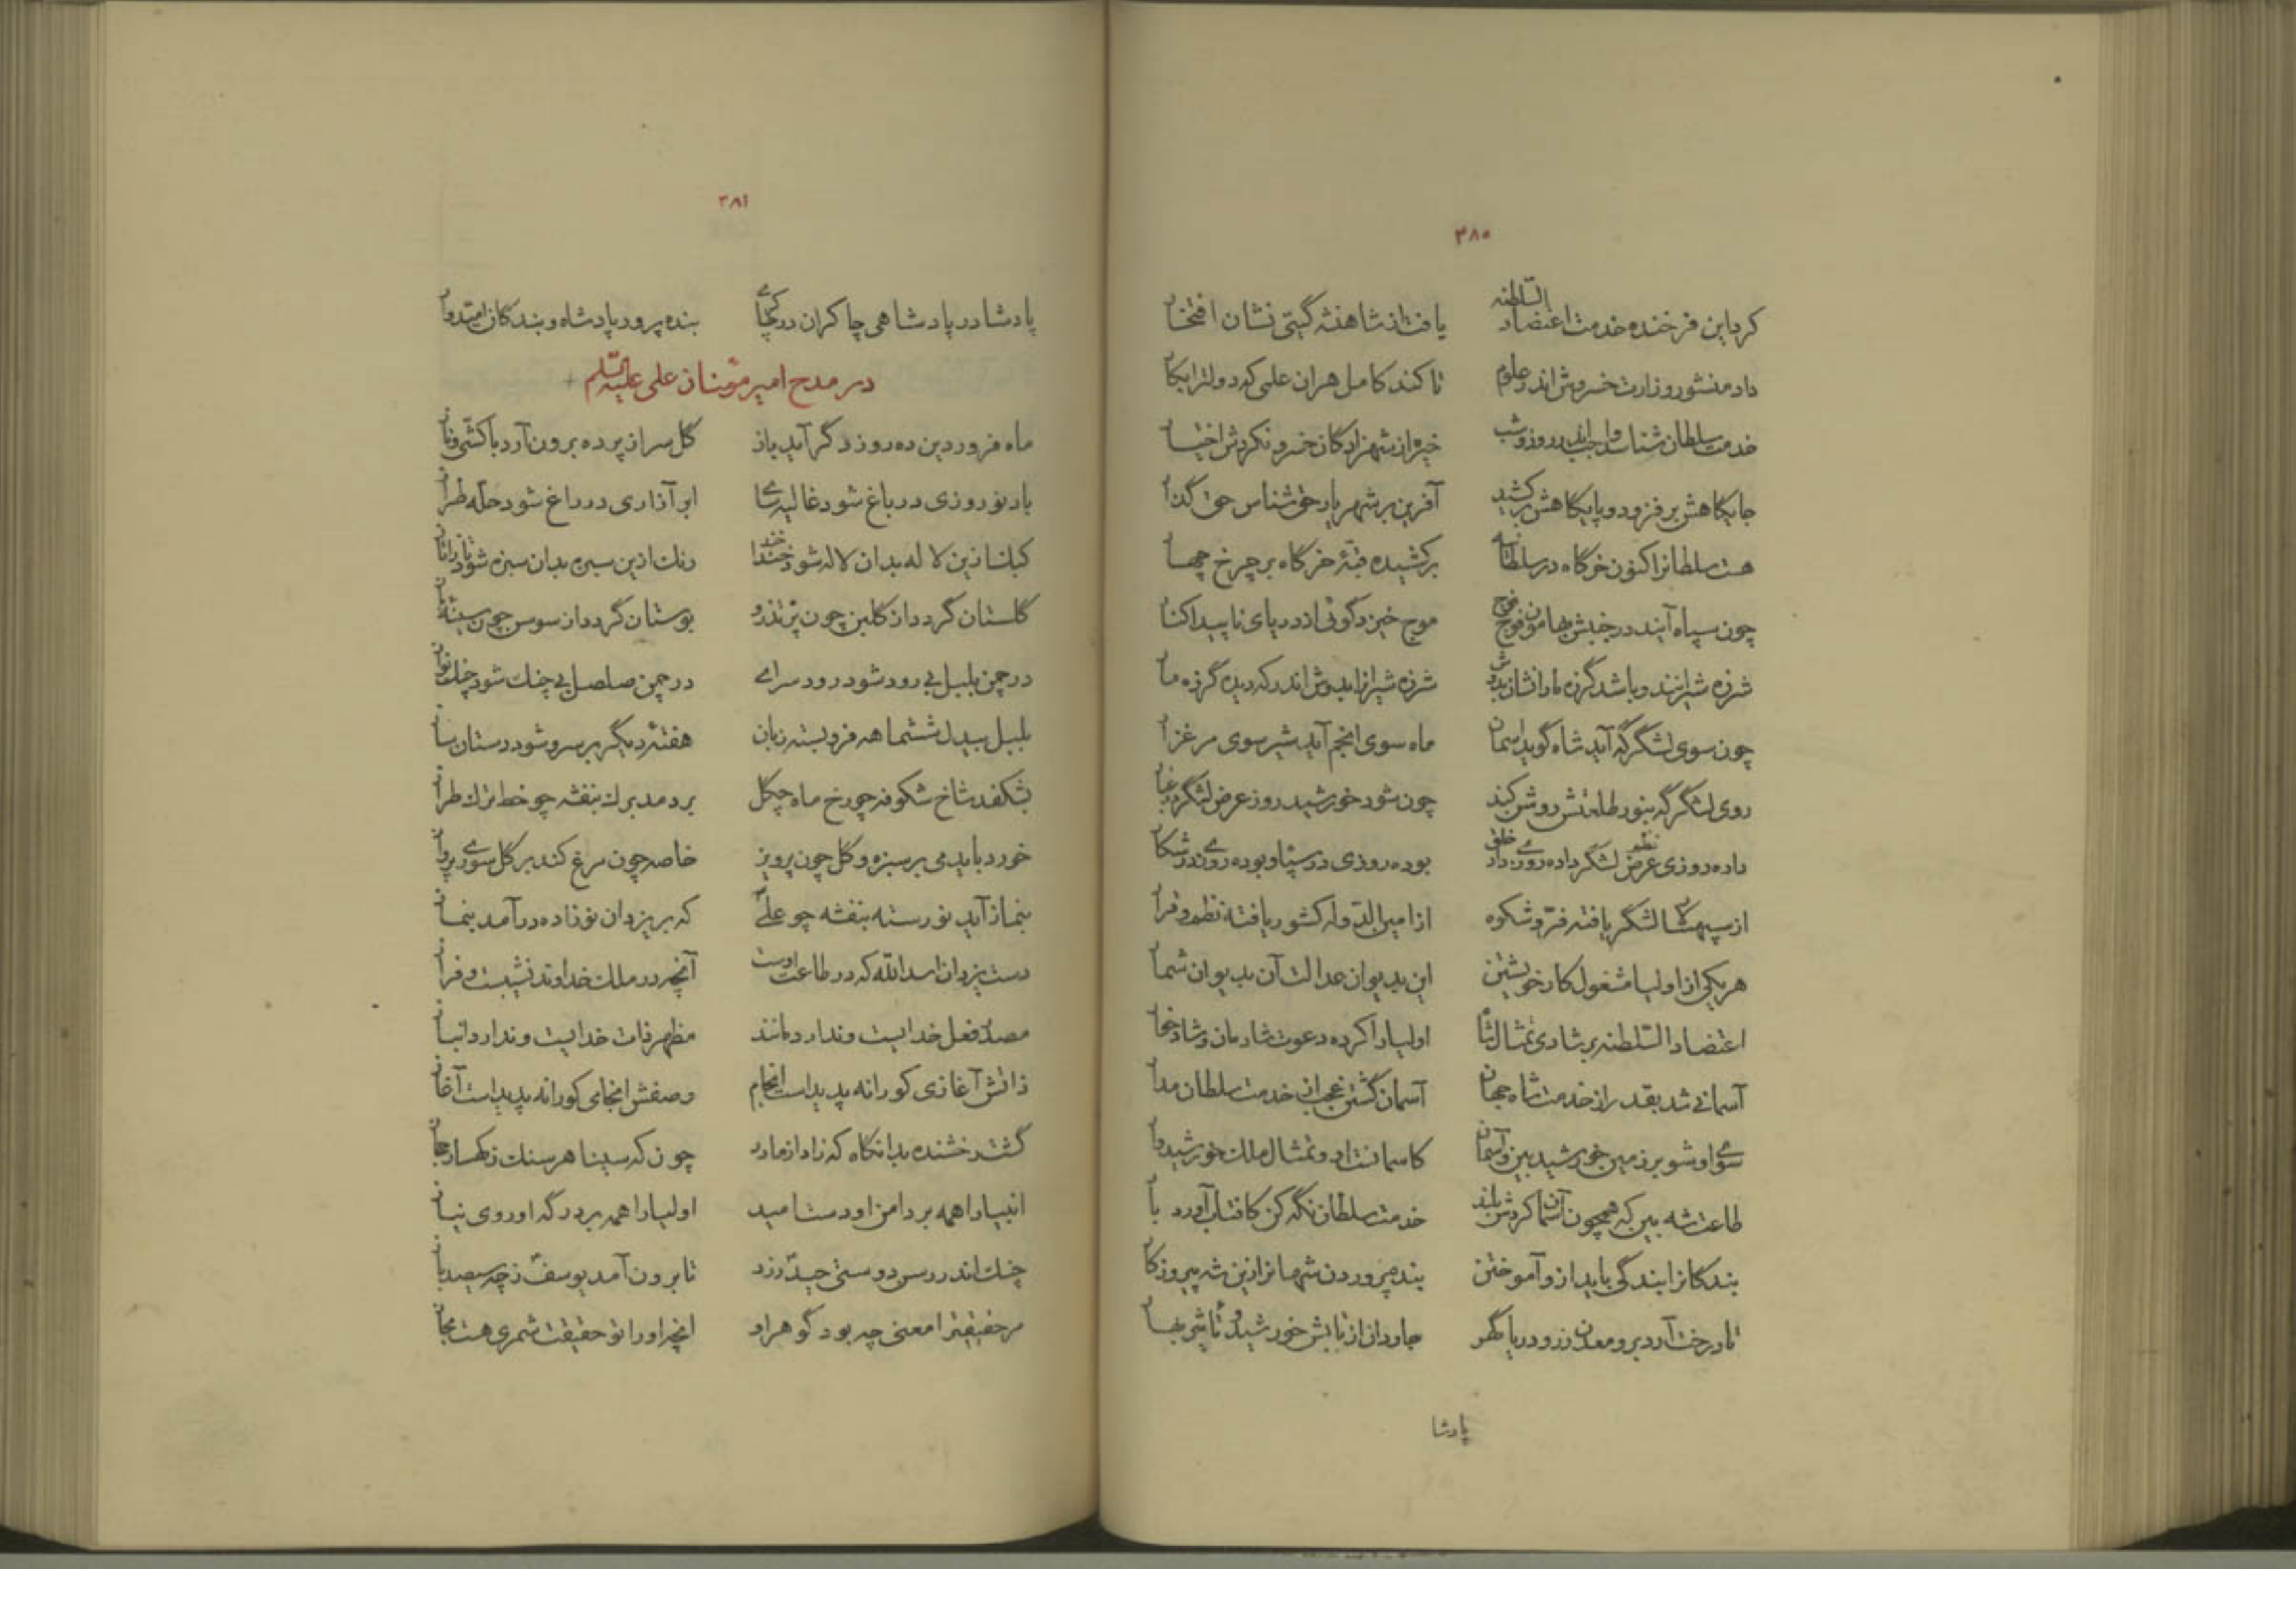 ۳۸۰
کرد این فرخنده خدمت اعتضاد السّلطنه یافت از شاهنشه گیتی نشان افتخار
داد منشور وزارت خسروش اندر علوم تا کند کامل هر آن علمی که دولترا بکار
خدمت سلطان شناسد واجب اندر روز و شب خیره از شهزادگان خسرو نکردش اختیار
جایگاهش برفزود و پایگاهش برکشید آفرین بر شهریار حق شناس حق گذار
هست سلطانرا کنون خرگاه در سلطانیه برکشیده قبّهٔ خرگاه بر چرخ چهار
چون سپاه آیند در جنبش بهامون فوج فوج موج خیزد گوئی از دریای ناپیدا کنار
شرزه شیرانند و باشد گرزه ماران شان بدوش شرزه شیر ایدوش اندر که دیده گرزه مار
چون سوی لشگرگه آید شاه گوید آسمان ماه سوی انجم آید شیر سوی مرغزار
روی لشگرگه بنور طلعتش روشن کند چون شود خورشید روز عرض لشگر در غبار
داده روزی عرض لشگر داده روزی نظم خلق بوده روزی در سپاه و بوده روزی در شکار
از سپهسالار لشگر یافته فرّ و شکوه از امین الدّوله کشور یافته نظم و قرار
هر یکی از اولیا مشغول کار خویشتن این بدیوان عدالت آن بدیوان شمار
اعتضاد السّلطنه بر شادی تمثال شاه اولیا را کرده دعوت شادمان و شادخوار
آسمانی شد بقدر از خدمت شاه جهان آسمان گشتن عجب از خدمت سلطان مدار
سوی او شو بر زمین خورشید بین و آسمان کاسمانست او و تمثال ملک خورشیدوار
طاعت شه بین که همچون آسمان کردش بلند خدمت سلطان نگه کن کافتاب آورد بار
بندگانرا بندگی باید از او آموختن بنده پروردن شهانرا زین شه پیروزکار
تا درخت آرد بر و معدن زر و دریا گهر جاودان از تابش خورشید و تأثیر بهار
پادشا
۳۸۱
پادشا در پادشاهی چاکران در چاکری بنده پرور پادشاه و بندگان امیدوار
در مدح امیر مؤمنان علی علیه السّلام
ماه فروردین ده روز دگر آید باز گل سر از پرده برون آرد با کشّی و ناز
باد نوروزی در باغ شود غالیه سای ابر آذاری در راغ شود حلّه طراز
کبک ازین لاله بدان لاله شود خنداخند رنگ ازین سبزه بدان سبزه شود تازاتاز
گلستان گردد از گلبن چون پرّ تذرو بوستان گردد از سوسن چون سینهٔ باز
در چمن بلبل بی رود شود رود سرای در چمن صلصل بی چنگ شود چنگ نواز
بلبل بیدل ششماهه فرو بسته زبان هفتهٔ دیگر بر سرو شود دستان ساز
بشکفد شاخ شکوفه چو رخ ماه چگل بردمد برگ بنفشه چو خط ترک طراز
خورد باید می بر سبزه و گل چون پرویز خاصه چون مرغ کند بر گل سوری پرواز
بنماز آید نورسته بنفشه چو علی که بر یزدان نوزاده درآمد بنماز
دست یزدان اسد اللّه که در طاعت اوست آنچه در ملک خداوند نشیبست و فراز
مصدر فعل خدایست و ندارد مانند مظهر ذات خدایست و ندارد انباز
ذاتش آغازی کورا نه پدیداست انجام وصفش انجامی کورا نه پدیداست آغاز
گشت رخشنده بدانگاه که زاد از مادر چون که سینا هر سنگ ز کهسار حجاز
انبیا را همه بر دامن او دست امید اولیا را همه بر درگه او روی نیاز
چنگ اندر رسن دوستی حیدر زد تا برون آمد یوسف ز چه سیصد باز
مر حقیقترا معنی چه بود گوهر او آنچه او را تو حقیقت شمری هست مجاز